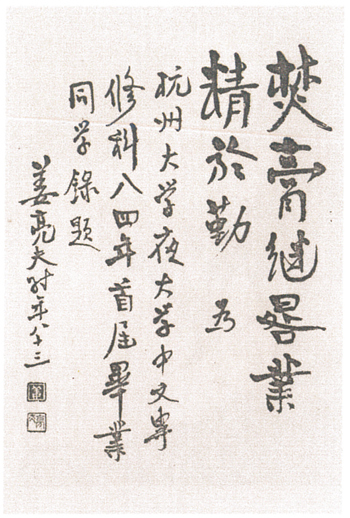 焚膏继晷業
精於勤 为
杭州大学夜大学中文專
修科八四年首届畢業
同学錄题
姜亮夫时年八十三